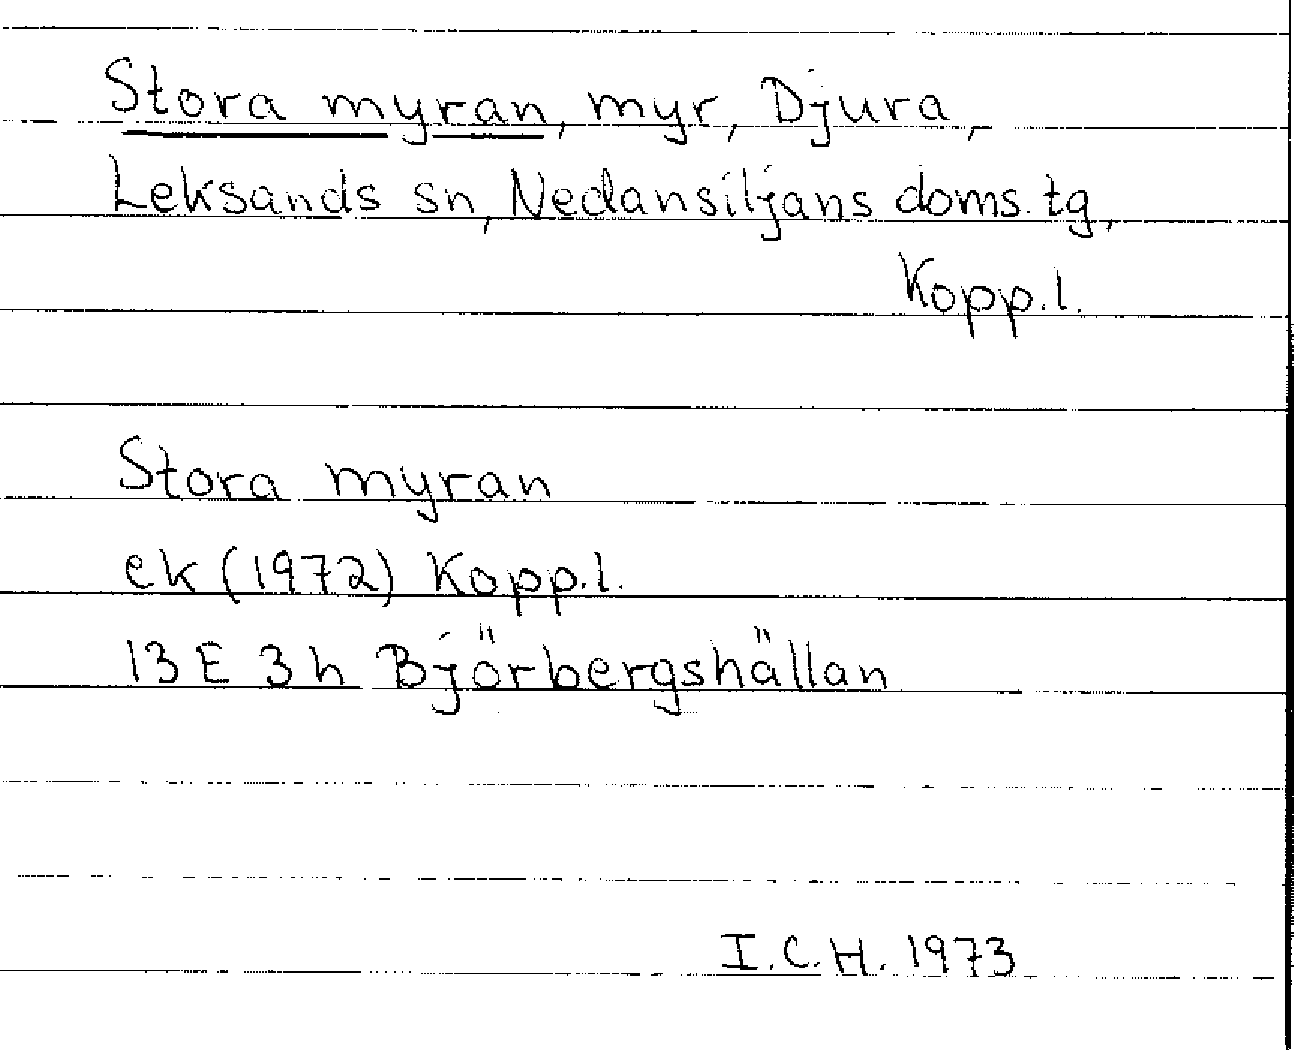 Stora myran, myr, Djura,
Leksands sn, Nedansiljans doms. tg,
Kopp.l.
Stora myran
ek (1972) Kopp.l.
13 E 3 h Björbergshällan
I.C.H. 1973